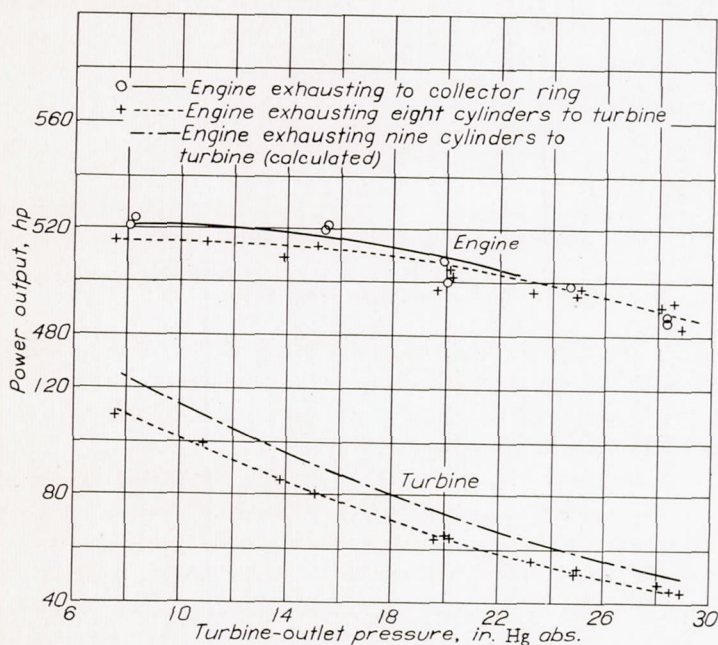 Engine exhausting to collector ring
Engine exhausting eight cylinders to turbine
Engine exhausting nine cylinders to
turbine (calculated)
560
520
480
120
80
40
Power output, hp
Engine
Turbine
6 10 14 18 22 26 30
Turbine-outlet pressure, in. Hg abs.